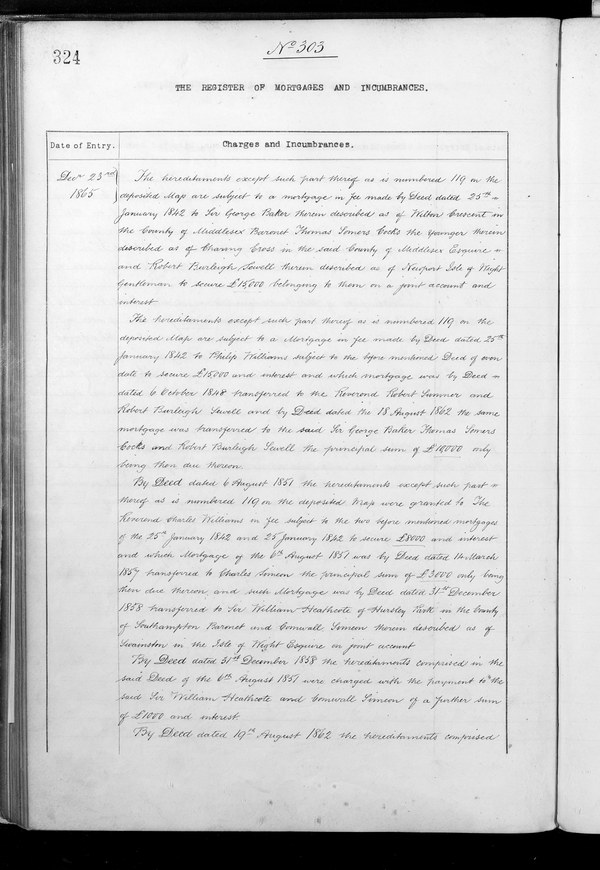 324
No 303
THE REGISTER OF MORTGAGES AND INCUMBRANCES.
Date of Entry.
Charges and Incumbrances.
Decr 23rd
1865
The hereditaments except such part thereof as is numbered 119 on the
deposited Map are subject to a mortgage in fee made by Deed dated 25th =
January 1842 to Sir George Baker therein described as of Wilton Crescent in
the County of Middlesex Baronet Thomas Somers Cocks the younger therein
described as of Charing Cross in the said County of Middlesex Esquire =
and Robert Burleigh Sewell therein described as of Newport Isle of Wight
Gentleman to secure £15,000 belonging to them on a joint account and
interest
The hereditaments except such part thereof as is numbered 119 on the
deposited Map are subject to a Mortgage in fee made by Deed dated 25th
January 1842 to Philip Williams subject to the before mentioned Deed of even
date to secure £15,000 and interest and which mortgage was by Deed =
dated 6 October 1848 transferred to the Reverend Robert Sumner and
Robert Burleigh Sewell and by Deed dated the 18 August 1862 the same
mortgage was transferred to the said Sir George Baker Thomas Somers
Cocks and Robert Burleigh Sewell the principal sum of £10,000 only
being then due thereon.
By Deed dated 6 August 1851 the hereditaments except such part =
thereof as is numbered 119 on the deposited Map were granted to The
Reverend Charles Williams in fee subject to the two before mentioned mortgages
of the 25th January 1842 and 25 January 1842 to secure £8000 and interest
and which Mortgage of the 6th August 1851 was by Deed dated 14 March
1857 transferred to Charles Simeon the principal sum of £3000 only being
then due thereon, and such Mortgage was by Deed dated 31st December
1858 transferred to Sir William Heathcote of Hursley Park in the County
of Southampton Baronet and Cornwall Simeon therein described as of
Swainston in the Isle of Wight Esquire on joint account
By Deed dated 31st December 1858 the hereditaments comprised in the
said Deed of the 6th August 1851 were charged with the payment to the
said Sir William Heathcote and Cornwall Simeon of a further sum
of £1000 and interest.
By Deed dated 19th August 1862 the hereditaments comprised